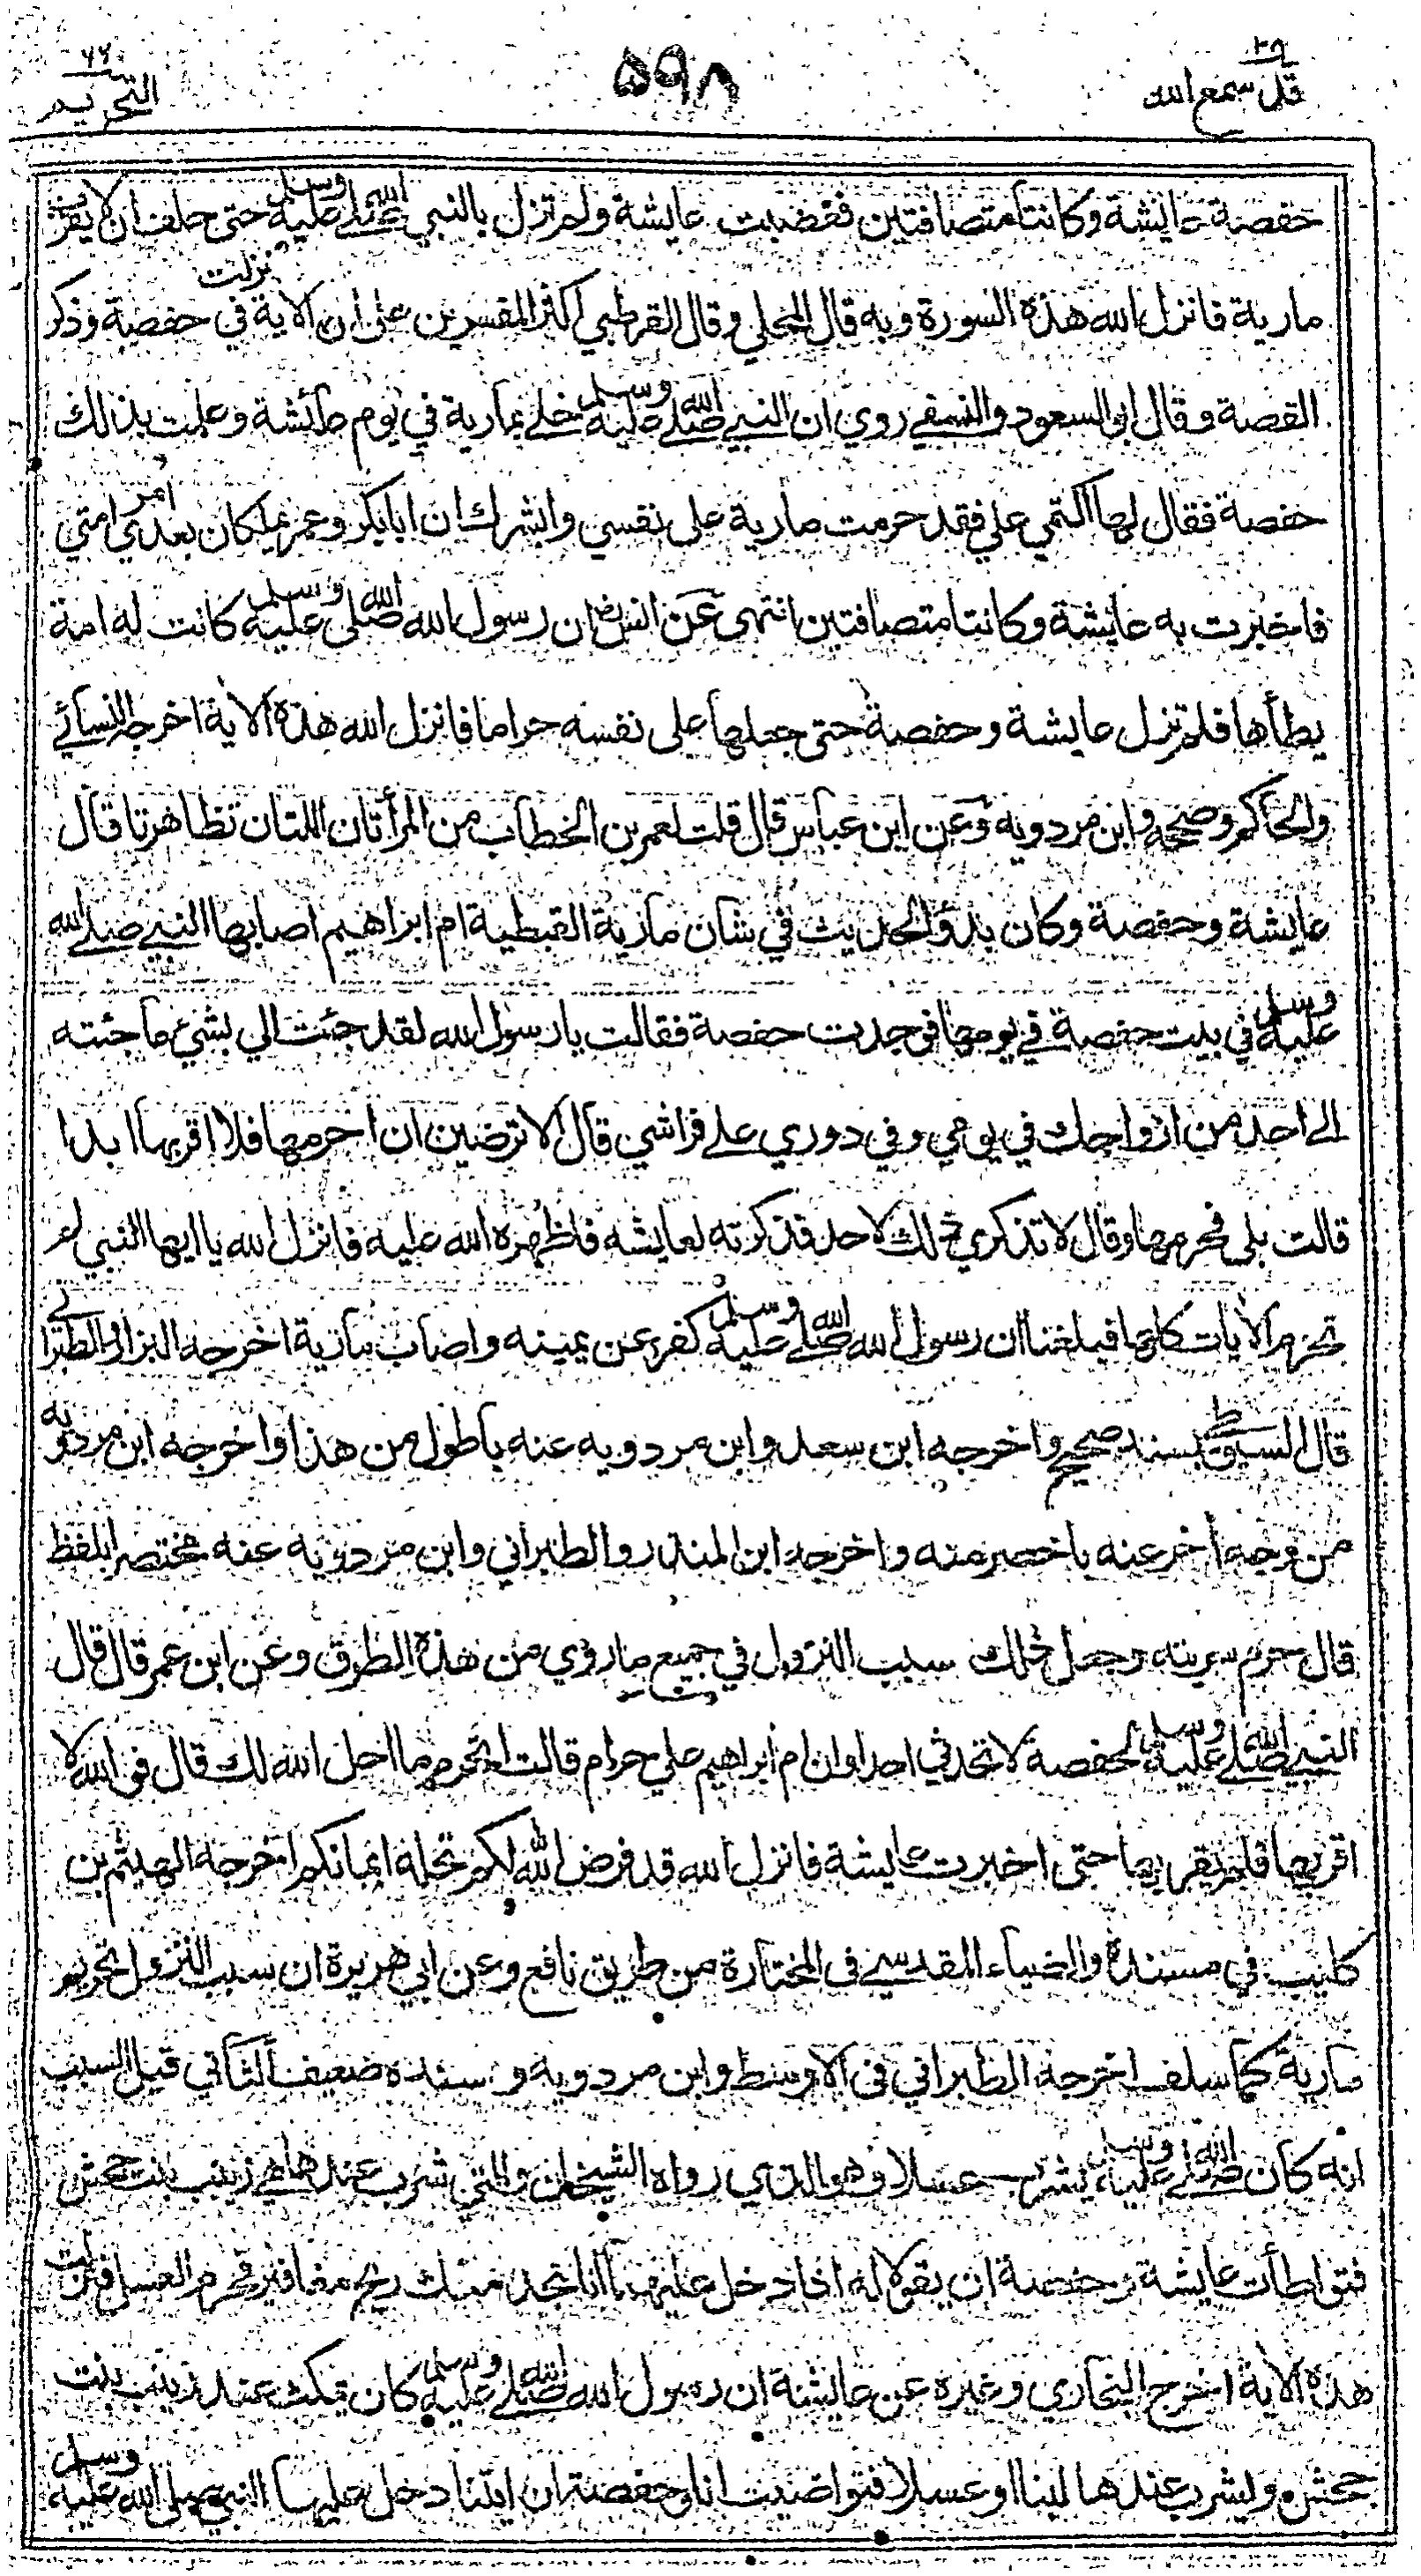 ٢٨
قد سمع الله
٥٩٨
٦٦
التحريم
حفصة عايشة وكانتا متصافتين فغضبت عايشة ولم تزل بالنبي صلى الله عليه وسلم حتى حلف ان لا يقرب
مارية فانزل الله هذه السورة وبه قال المحلي وقال القرطبي اكثر المفسرين على ان الاية نزلت في حفصة وذكر
القصة وقال ابو السعود والنسفي روي ان النبي صلى الله عليه وسلم خلى بمارية في يوم عائشة وعلمت بذلك
حفصة فقال لها اكتمي علي فقد حرمت مارية على نفسي وابشرك ان ابابكر وعمر يملكان بعدي امر امتي
فاخبرت به عايشة وكانتا متصافتين انتهى عن انس رض ان رسول الله صلى الله عليه وسلم كانت له امة
يطأها فلم تزل عايشة وحفصة حتى جعلها على نفسه حراما فانزل الله هذه الاية اخرجه النسائي
والحاكم وصححه وابن مردويه وعن ابن عباس قال قلت لعمر بن الخطاب من المرأتان اللتان تظاهرتا قال
عايشة وحفصة وكان بدؤ الحديث في شان مارية القبطية ام ابراهيم اصابها النبي صلى الله
عليه وسلم في بيت حفصة في يومها فوجدت حفصة فقالت يا رسول الله لقد جئت الي بشيء ما جئته
الى احد من ازواجك في يومي وفي دوري على فراشي قال الا ترضين ان احرمها فلا اقربها ابدا
قالت بلى فحرمها وقال لا تذكري ذلك لاحد فذكرته لعايشه فاظهره الله عليه فانزل الله يا ايها النبي لم
تحرم الايات كلها فبلغنا ان رسول الله صلى الله عليه وسلم كفر عن يمينه واصاب مارية اخرجه البزار والطبراني
قال السيوطي بسند صحيح واخرجه ابن سعد وابن مردويه عنه باطول من هذا واخرجه ابن مردويه
من وجه أخر عنه باخصر منه واخرجه ابن المنذر والطبراني وابن مردويه عنه مختصرا بلفظ
قال حرم سريته وجعل ذلك سبب النزول في جميع ما روي من هذه الطرق وعن ابن عمر قال قال
النبي صلى الله عليه وسلم لحفصة لا تحدثي احدا وان ام ابراهيم علي حرام قالت اتحرم ما احل الله لك قال فوالله لا
اقربها فلم يقربها حتى اخبرت عايشة فانزل الله قد فرض الله لكم تحلة ايمانكم اخرجه الهيثم بن
كليب في مسنده والضياء المقدسي في المختارة من طريق نافع وعن ابي هريرة ان سبب النزول تحريم
مارية كما سلف اخرجه الطبراني في الاوسط وابن مردويه وسنده ضعيف الثاني قيل السبب
انه كان صلى الله عليه وسلم يشرب عسلا وهو الذي رواه الشيخان والتي شرب عندها هي زينب بنت جحش
فتواطأت عايشة وحفصة ان يقولا له اذا دخل عليهما انا نجد منك ريح مغافير فحرم العسل فنزلت
هذه الاية اخرج البخاري وغيره عن عايشة ان رسول الله صلى الله عليه وسلم كان يمكث عند زينب بنت
جحش ويشرب عندها لبنا او عسلا فتواصيت انا وحفصة ان ايتنا دخل عليها النبي صلى الله عليه وسلم